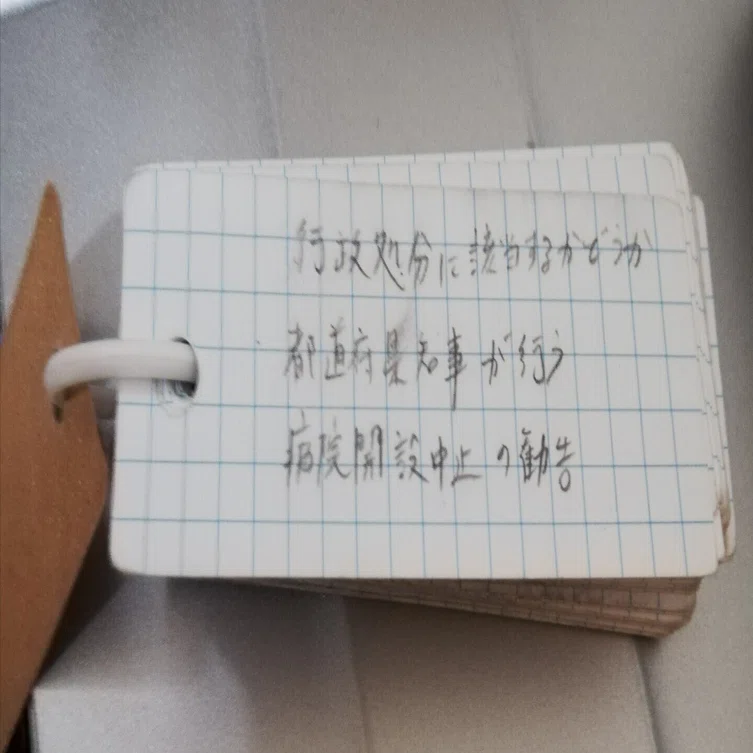 行政処分に該当するかどうか
都道府県知事が行う
病院開設中止の勧告